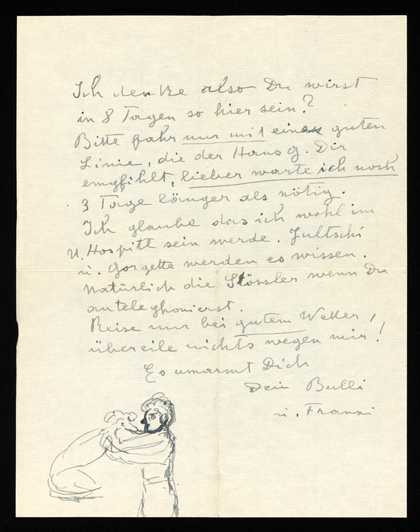 Ich denke also Du wirst
in 8 Tagen so hier sein?
Bitte fahr nur mit einer guten
Linie, die der Hans G. Dir
empfihlt, lieber warte ich noch
3 Tage länger als nötig.
Ich glaube das ich wohl im
U. Hospitl sein werde. Jultschi
u. Gorgette werden es wissen.
Natürlich die Stössler wenn Du
antelephonierst.
Reise nur bei gutem Wetter,
übereile nichts wegen mir!
Es umarmt Dich
Dein Bulli
u. Franzi